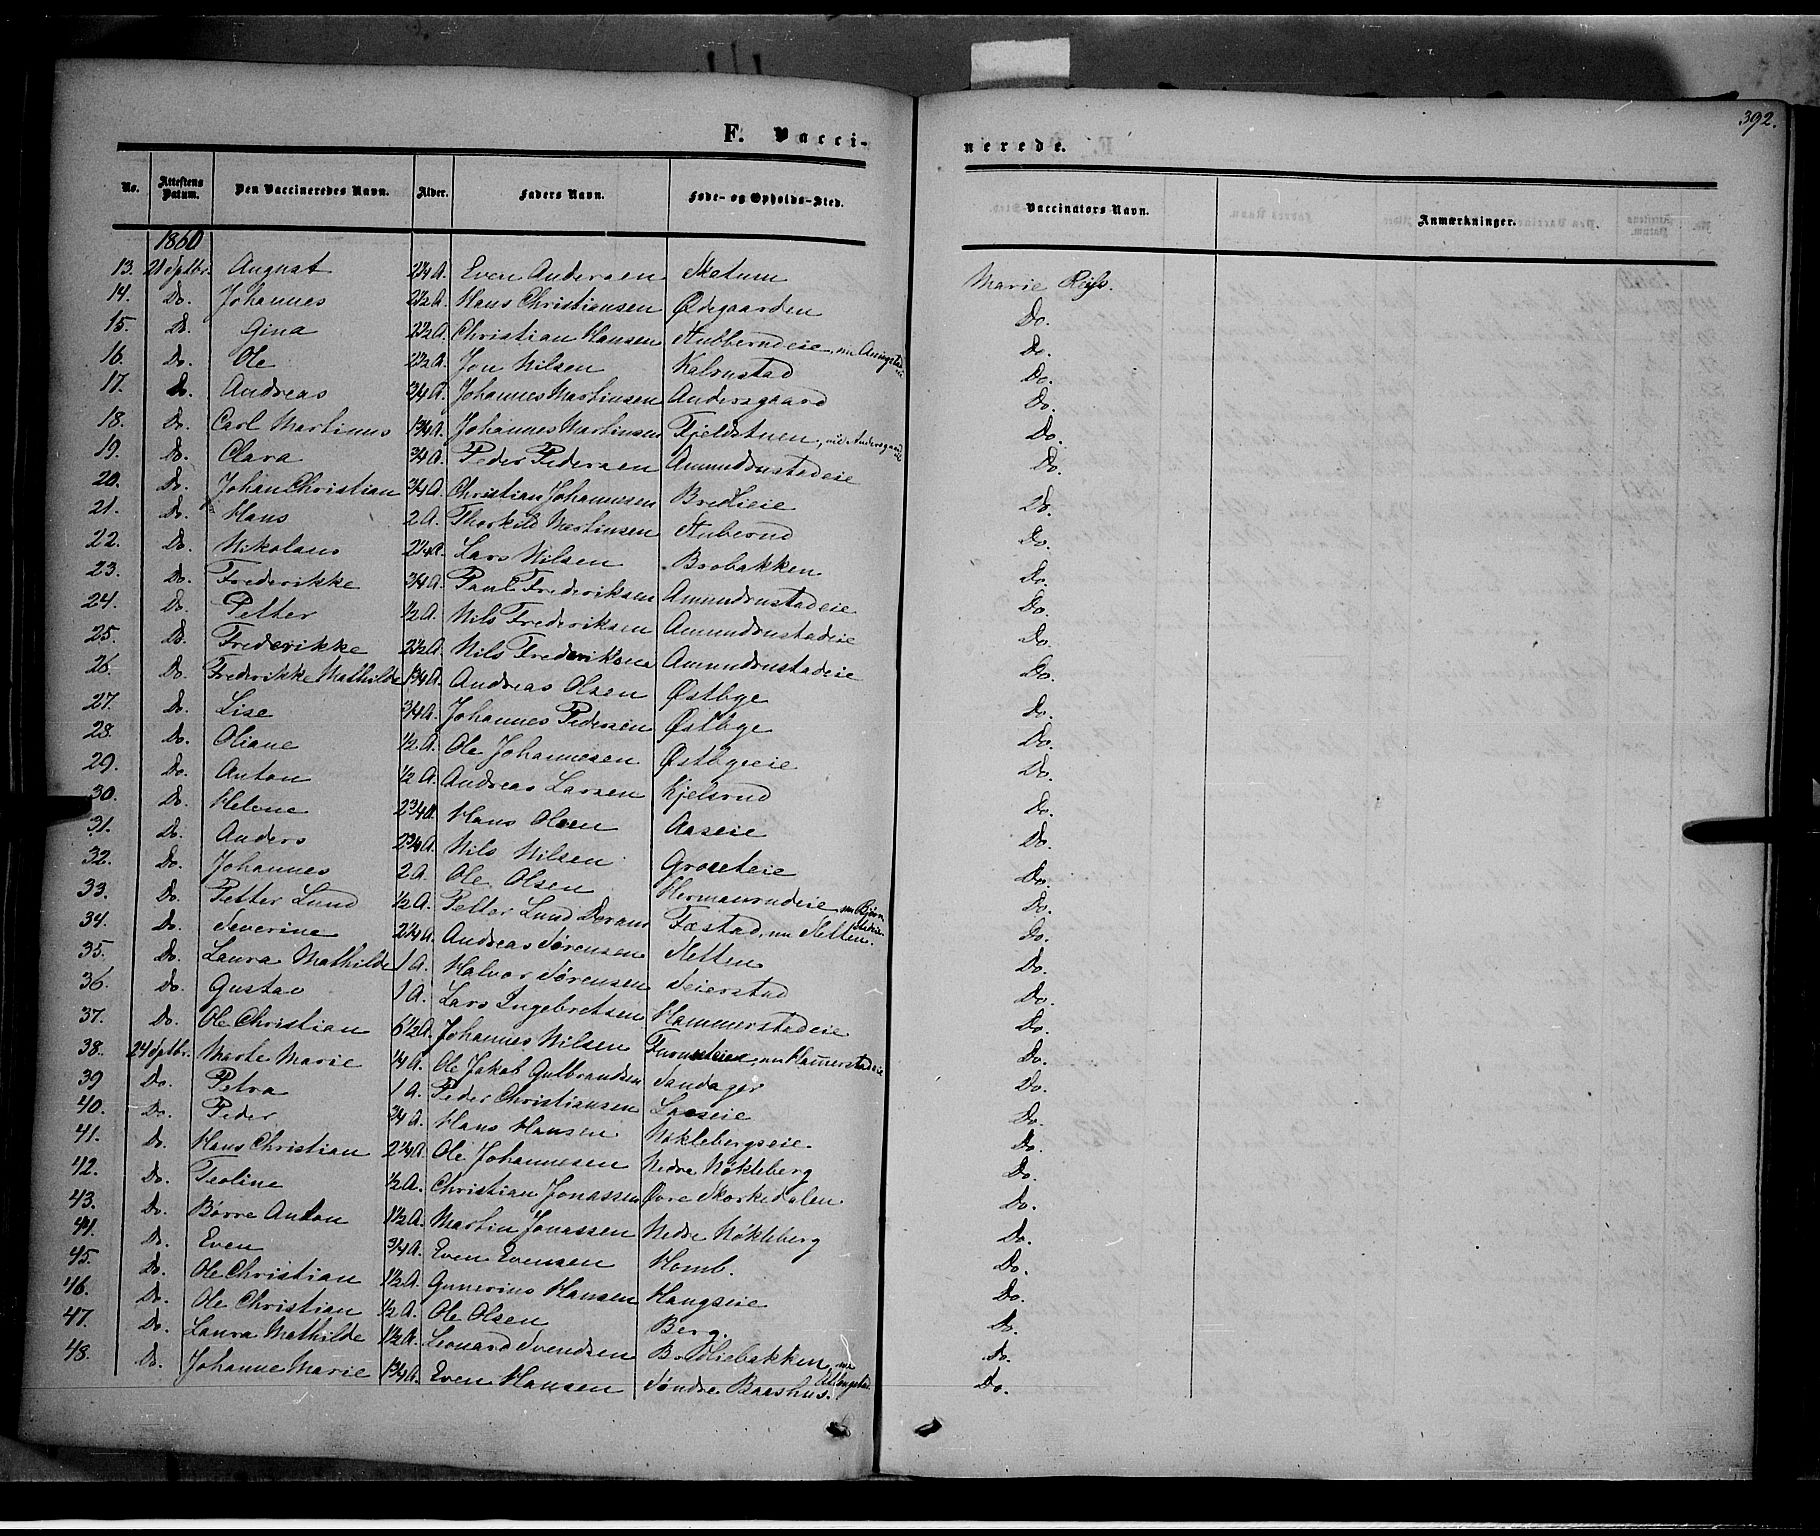 392.
F. Vacci-nerede.
No. Attestens Datum. Den Vaccineredes Navn. Alder. Faders Navn. Føde- og Opholds-Sted. Vaccinators Navn. Anmærkninger.
1860
13. 21 Sptbr. August 2¼ A. Even Andersen Skatum Marie Reiss.
14. Do. Johannes 2½ A. Hans Christiansen Ødegaarden Do.
15. D. Gina 2½ A. Christian Hansen Stubberudeie, nu Do.
16. Do. Ole 2½ A. Jon Nilsen Kalrustad Do.
17. Do. Andreas ¾ A. Johannes Martinsen Andersgaard Do.
18. Do. Carl Martinus 1¾ A. Johannes Martinsen Fjeldstuen, ved Andersgaard Do.
19. Do. Clara ¾ A. Peder Pedersen Amundrustadeie Do.
20. Do. Johan Christian ¾ A. Christian Johannesen Bredlieie Do.
21. Do. Hans 2 A. Thorkild Martinsen Stuberud Do.
22. Do. Nikolaus 2¼ A. Lars Nilsen Brobakken Do.
23. Do. Frederikke ¾ A. Paul Frederiksen Amundrustadeie Do.
24. Do. Petter ½ A. Nils Frederiksen Amundrustadeie Do.
25. Do. Frederikke 2½ A. Nils Frederiksen Amundrustadeie Do.
26. Do. Frederikke Mathilde 1¾ A. Andreas Olsen Østbye Do.
27. Do. Lise ¾ A. Johannes Pedersen Østbye Do.
28. Do. Oliane ½ A. Ole Johannesen Østbyeeie Do.
29. Do. Anton ½ A. Andreas Larsen Kjelsrud Do.
30. Do. Helene 2¾ A. Hans Olsen Aaseie Do.
31. Do. Anders 2¾ A. Nils Nilsen Groseteie Do.
32. Do. Johannes 2 A. Ole Olsen Hermansrudeie, nu Do.
33. Do. Petter Lund ½ A. Petter Lund Fæstad, nu Sletten. Do.
34. Do. Severine 2¼ A. Andreas Sørensen Sletten Do.
35. Do. Laura Mathilde 1 A. Halvor Sørensen Seierstad Do.
36. Do. Gustav 1 A. Lars Ingebretsen Hammerstadeie Do.
37. Do. Ole Christian 6½ A. Johannes Nilsen nu Hammerstadeie Do.
38. 24 Sptbr. Marte Marie ¼ A. Ole Jakob Gulbrandsen Sandager Do.
39 Do. Petra 1 A. Peder Christiansen Laaseie Do.
40. Do. Peder ¾ A. Hans Hansen Nøklebergseie Do.
41. D. Hans Christian 2¼ A. Ole Johannesen Nedre Nøkleberg Do.
42. Do. Teoline ½ A. Christian Jonassen Øvre Skorkedalen Do.
43. Do. Børre Anton 1½ A. Martin Jonassen Nedre Nøkleberg Do.
44. Do. Even ¾ A. Even Evensen Homb. Do.
45. Do. Ole Christian 1½ A. Gunerius Hansen Haugseie Do.
46. Do. Ole Christian ½ A. Ole Olsen Berg. Do.
47. Do. Laura Mathilde 1½ A. Leonard Svendsen Bredliebakken, nu Do.
48. Do. Johanne Marie 1¾ A. Even Hansen Søndre Baashus. Do.